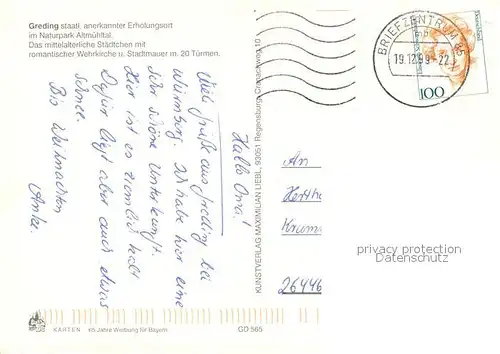 Greding staatl. anerkannter Erholungsort
im Naturpark Altmühltal.
Das mittelalterliche Städtchen mit
romantischer Wehrkirche u. Stadtmauer m. 20 Türmen.
Hallo Oma!
Viele Grüße aus Greding bei
Nürnberg. Ich habe hier eine
sehr schöne Unterkunft.
Hier ist es ziemlich kalt
Dafür liegt aber auch etwas
Schnee.
Bis Weihnachten
Anke.
KUNSTVERLAG MAXIMILIAN LIEBL, 93051 Regensburg, Cranachweg 10
BRIEFZENTRUM 85
mb
19.12.99-22
100
An
Herth
Krumm
26446
privacy protection
Datenschutz
KARTEN 45 Jahre Werbung für Bayern
GD 565